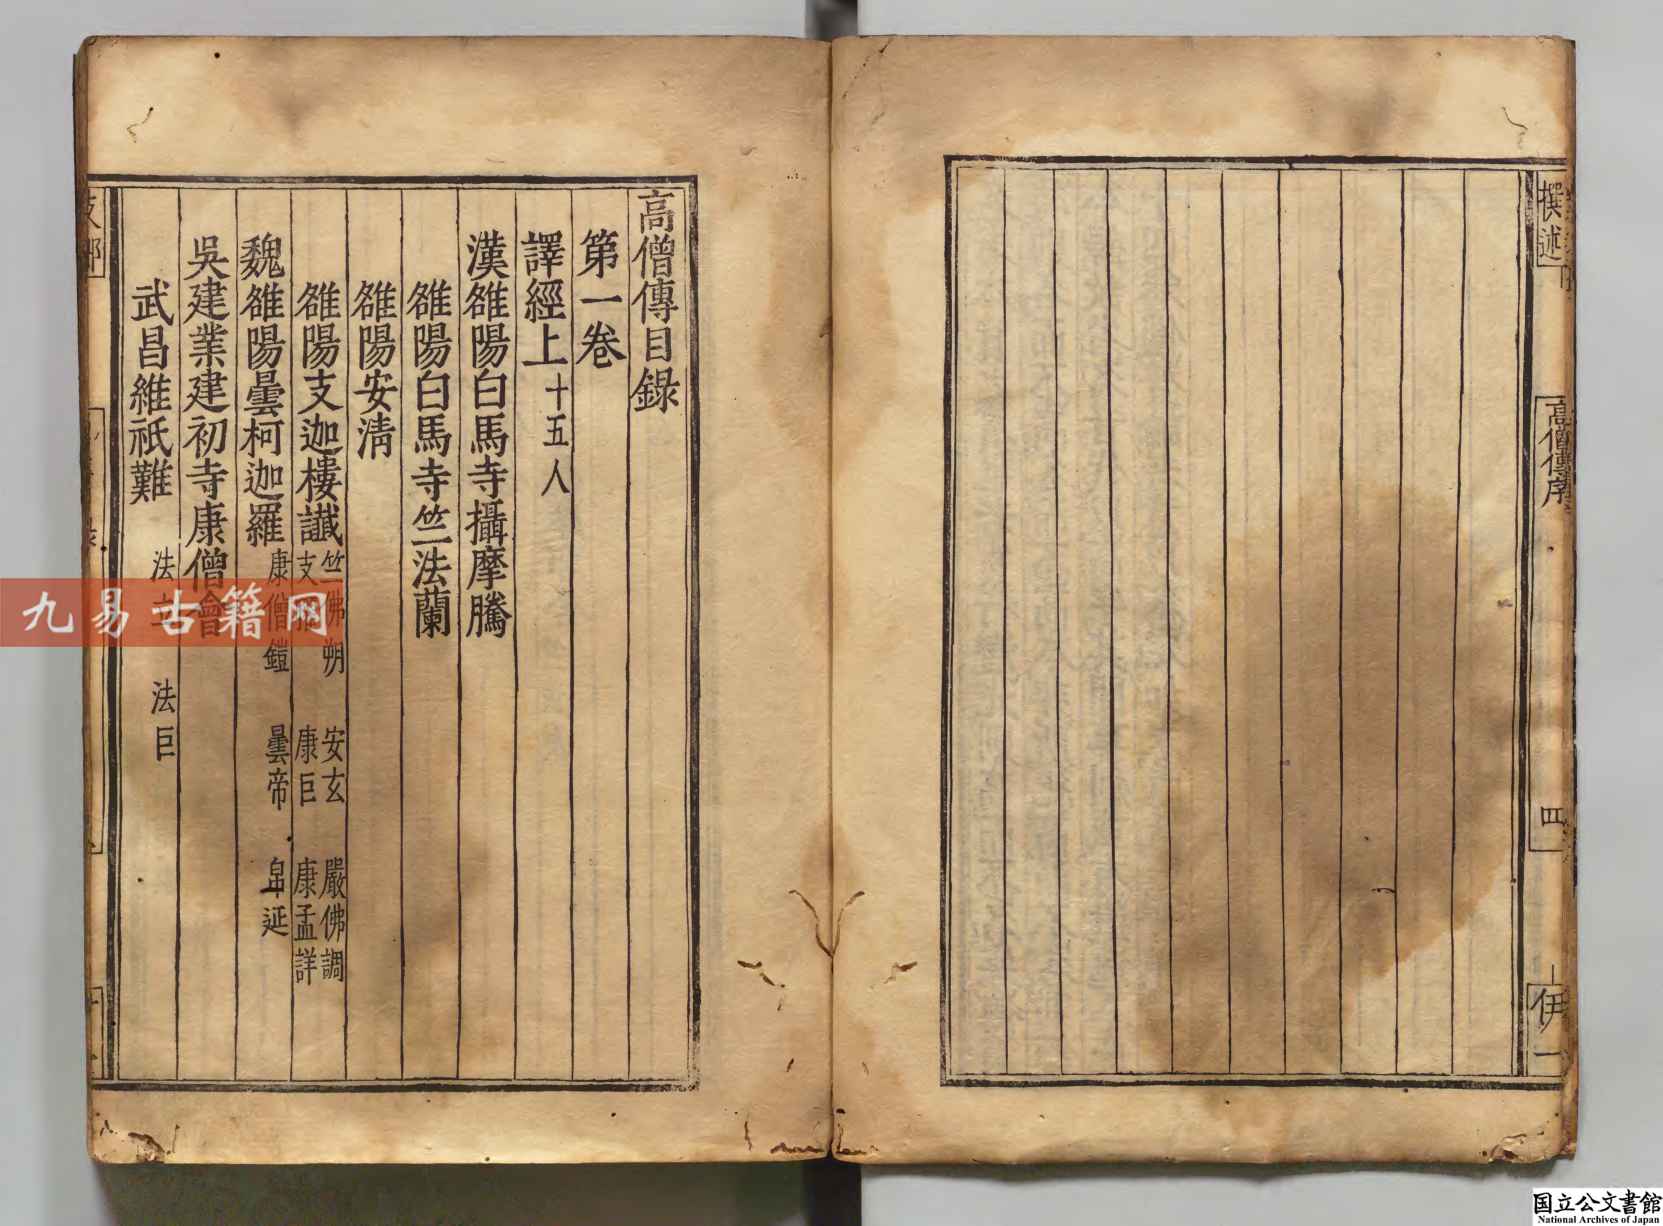 撰述
高僧傳序
四
伊一
高僧傳目錄
第一卷
譯經上十五人
漢雒陽白馬寺攝摩騰
雒陽白馬寺竺法蘭
雒陽安清
雒陽支迦樓讖
竺佛朔 安玄 嚴佛調
支曜 康巨 康孟詳
魏雒陽曇柯迦羅
康僧鎧 曇帝 帛延
吳建業建初寺康僧會
武昌維祇難
法立 法巨
九易古籍网
国立公文書館
National Archives of Japan